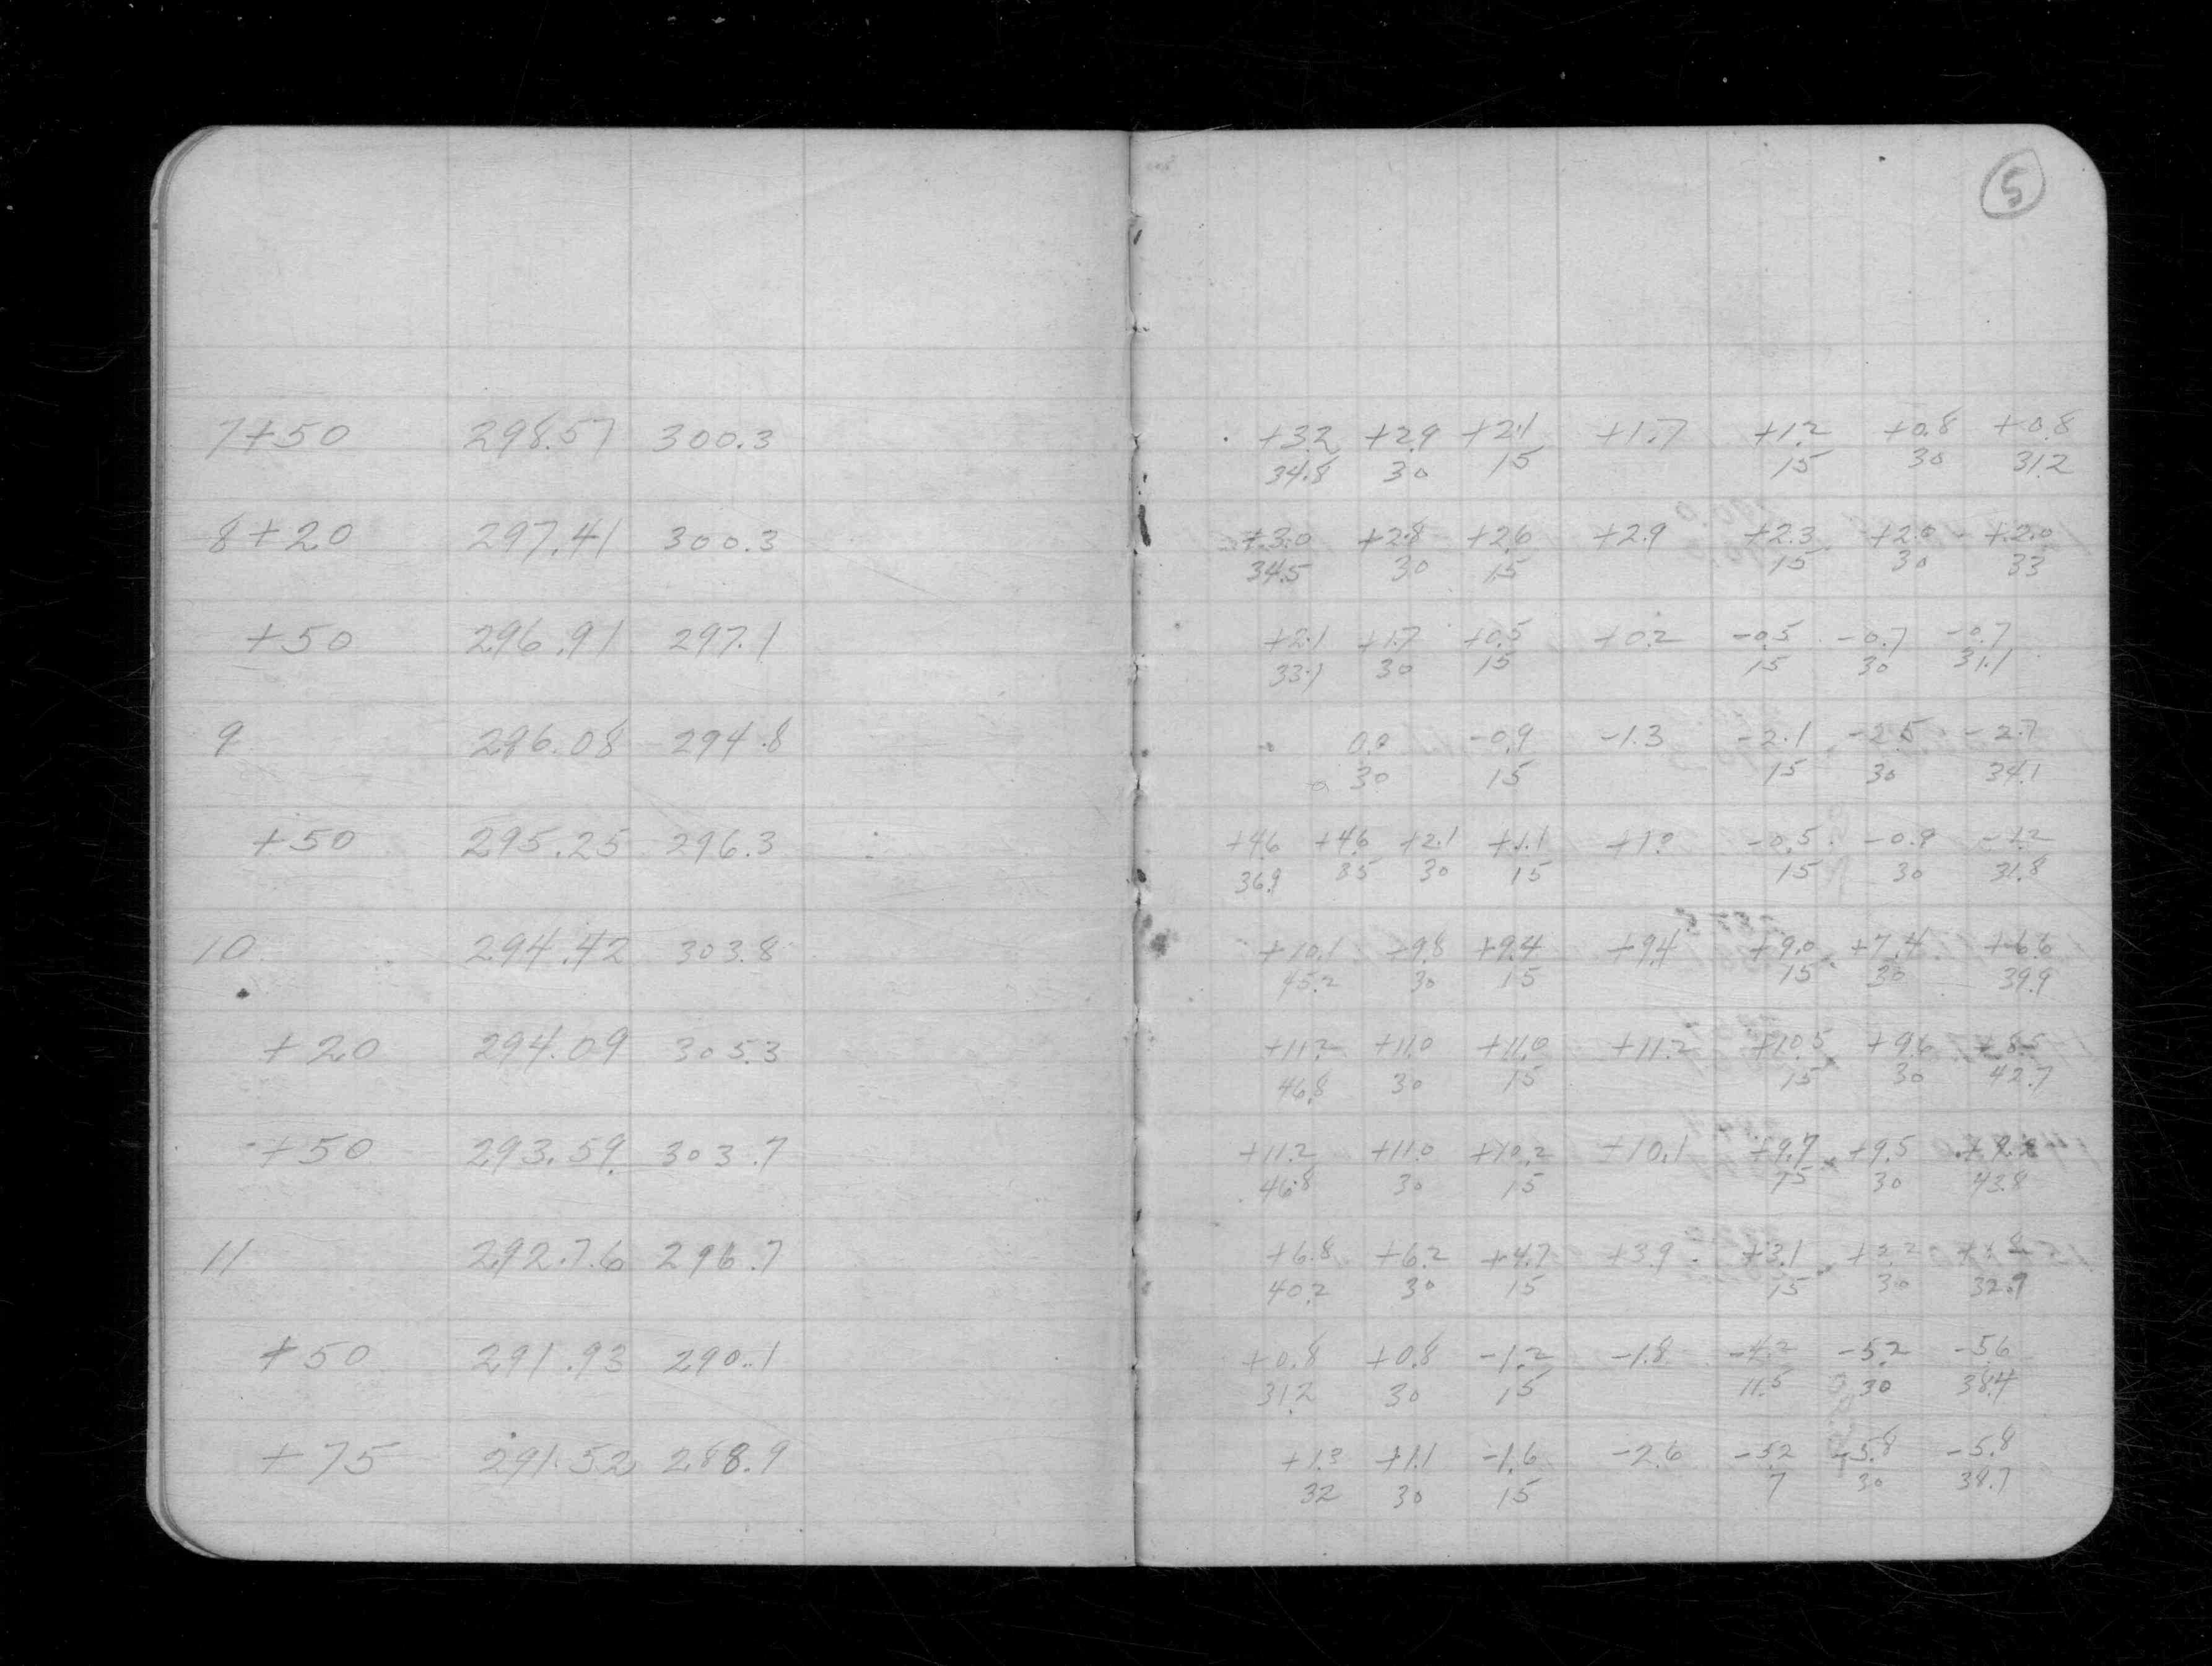 5
7+50 298.57 300.3 +3.2 +2.9 +2.1 +1.7 +1.2 +0.8 +0.8
34.8 30 15 15 30 31.2
8+20 297.41 300.3 +3.0 +2.8 +2.6 +2.9 +2.3 +2.0 +2.0
34.5 30 15 15 30 33
+50 296.91 297.1 +2.1 +1.7 +0.5 +0.2 -0.5 -0.7 -0.7
33.1 30 15 15 30 31.1
9 296.08 294.8 0.0 -0.9 -1.3 -2.1 -2.5 -2.7
30 15 15 30 34.1
+50 295.25 296.3 +4.6 +4.6 +2.1 +1.1 +1.0 -0.5 -0.9 -1.2
36.9 35 30 15 15 30 31.8
10 294.42 303.8 +10.1 +9.8 +9.4 +9.4 +9.0 +7.4 +6.6
45.2 30 15 15 30 39.9
+20 294.09 305.3 +11.2 +11.0 +11.0 +11.2 +10.5 +9.6 +8.5
46.8 30 15 15 30 42.7
+50 293.59 303.7 +11.2 +11.0 +10.2 +10.1 +9.7 +9.5
46.8 30 15 15 30 43.8
11 292.76 296.7 +6.8 +6.2 +4.7 +3.9 +3.1
40.2 30 15 15 30 32.9
+50 291.93 290.1 +0.8 +0.8 -1.2 -1.8 -4.2 -5.2 -5.6
31.2 30 15 11.5 30 38.4
+75 291.52 288.9 +1.3 +1.1 -1.6 -2.6 -5.2 -5.8 -5.8
32 30 15 7 30 38.7